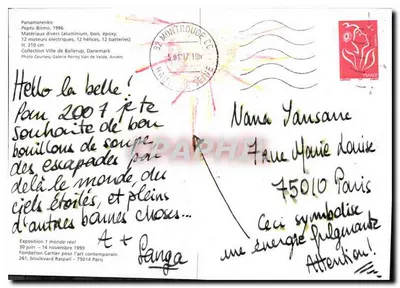 Panamarenko
Pepto Bismo, 1996
Matériaux divers (aluminium, bois, époxy,
12 moteurs électriques, 12 hélices, 12 batteries)
H. 210 cm
Collection Ville de Ballerup, Danemark
Photo Courtesy Galerie Ronny Van de Velde, Anvers
92 MONTROUGE CC
Hello la belle!
Pour 2007 je te
souhaite de bon
bouillons de soupe
des escapades par
delà le monde, du
ciels étoilés, et pleins
d'autres bonnes choses...
A +
Sanga
Exposition 1 monde réel
30 juin - 14 novembre 1999
Fondation Cartier pour l'art contemporain
261, boulevard Raspail - 75014 Paris
Nana Yansane
7 rue Marie Louise
75010 Paris
Ceci symbolise
une énergie fulgurante
Attention!